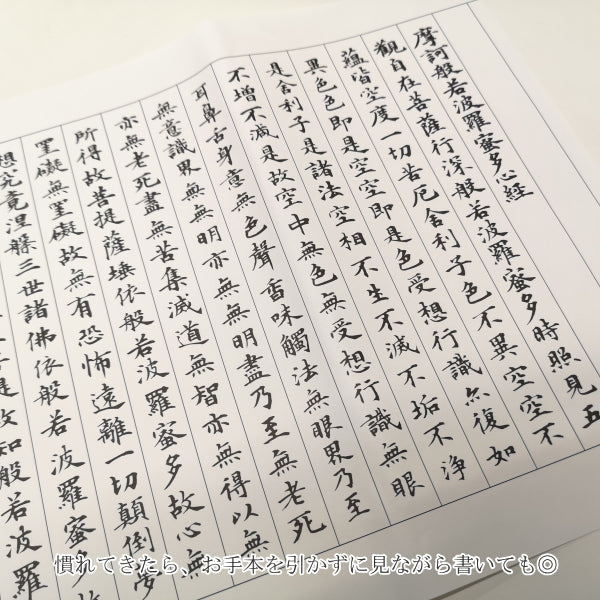 摩訶般若波羅蜜多心經
觀自在菩薩行深般若波羅蜜多時照見五
蘊皆空度一切苦厄舍利子色不異空空不
異色色即是空空即是色受想行識亦復如
是舍利子是諸法空相不生不滅不垢不淨
不增不減是故空中無色無受想行識無眼
耳鼻舌身意無色聲香味觸法無眼界乃至
無意識界無無明亦無無明盡乃至無老死
亦無老死盡無苦集滅道無智亦無得以無
所得故菩提薩埵依般若波羅蜜多故心無
罣礙無罣礙故無有恐怖遠離一切顛倒夢
想究竟涅槃三世諸佛依般若波羅蜜多
是故知般若波羅
慣れてきたら、お手本を引かずに見ながら書いても◎